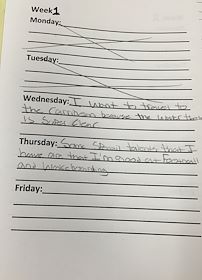 Week 1
Monday:
Tuesday:
Wednesday: I want to travel to
the carribean because the water there
is super clear
Thursday: Some speical talents that I
have are that I'm good at football
and wakeboarding
Friday: